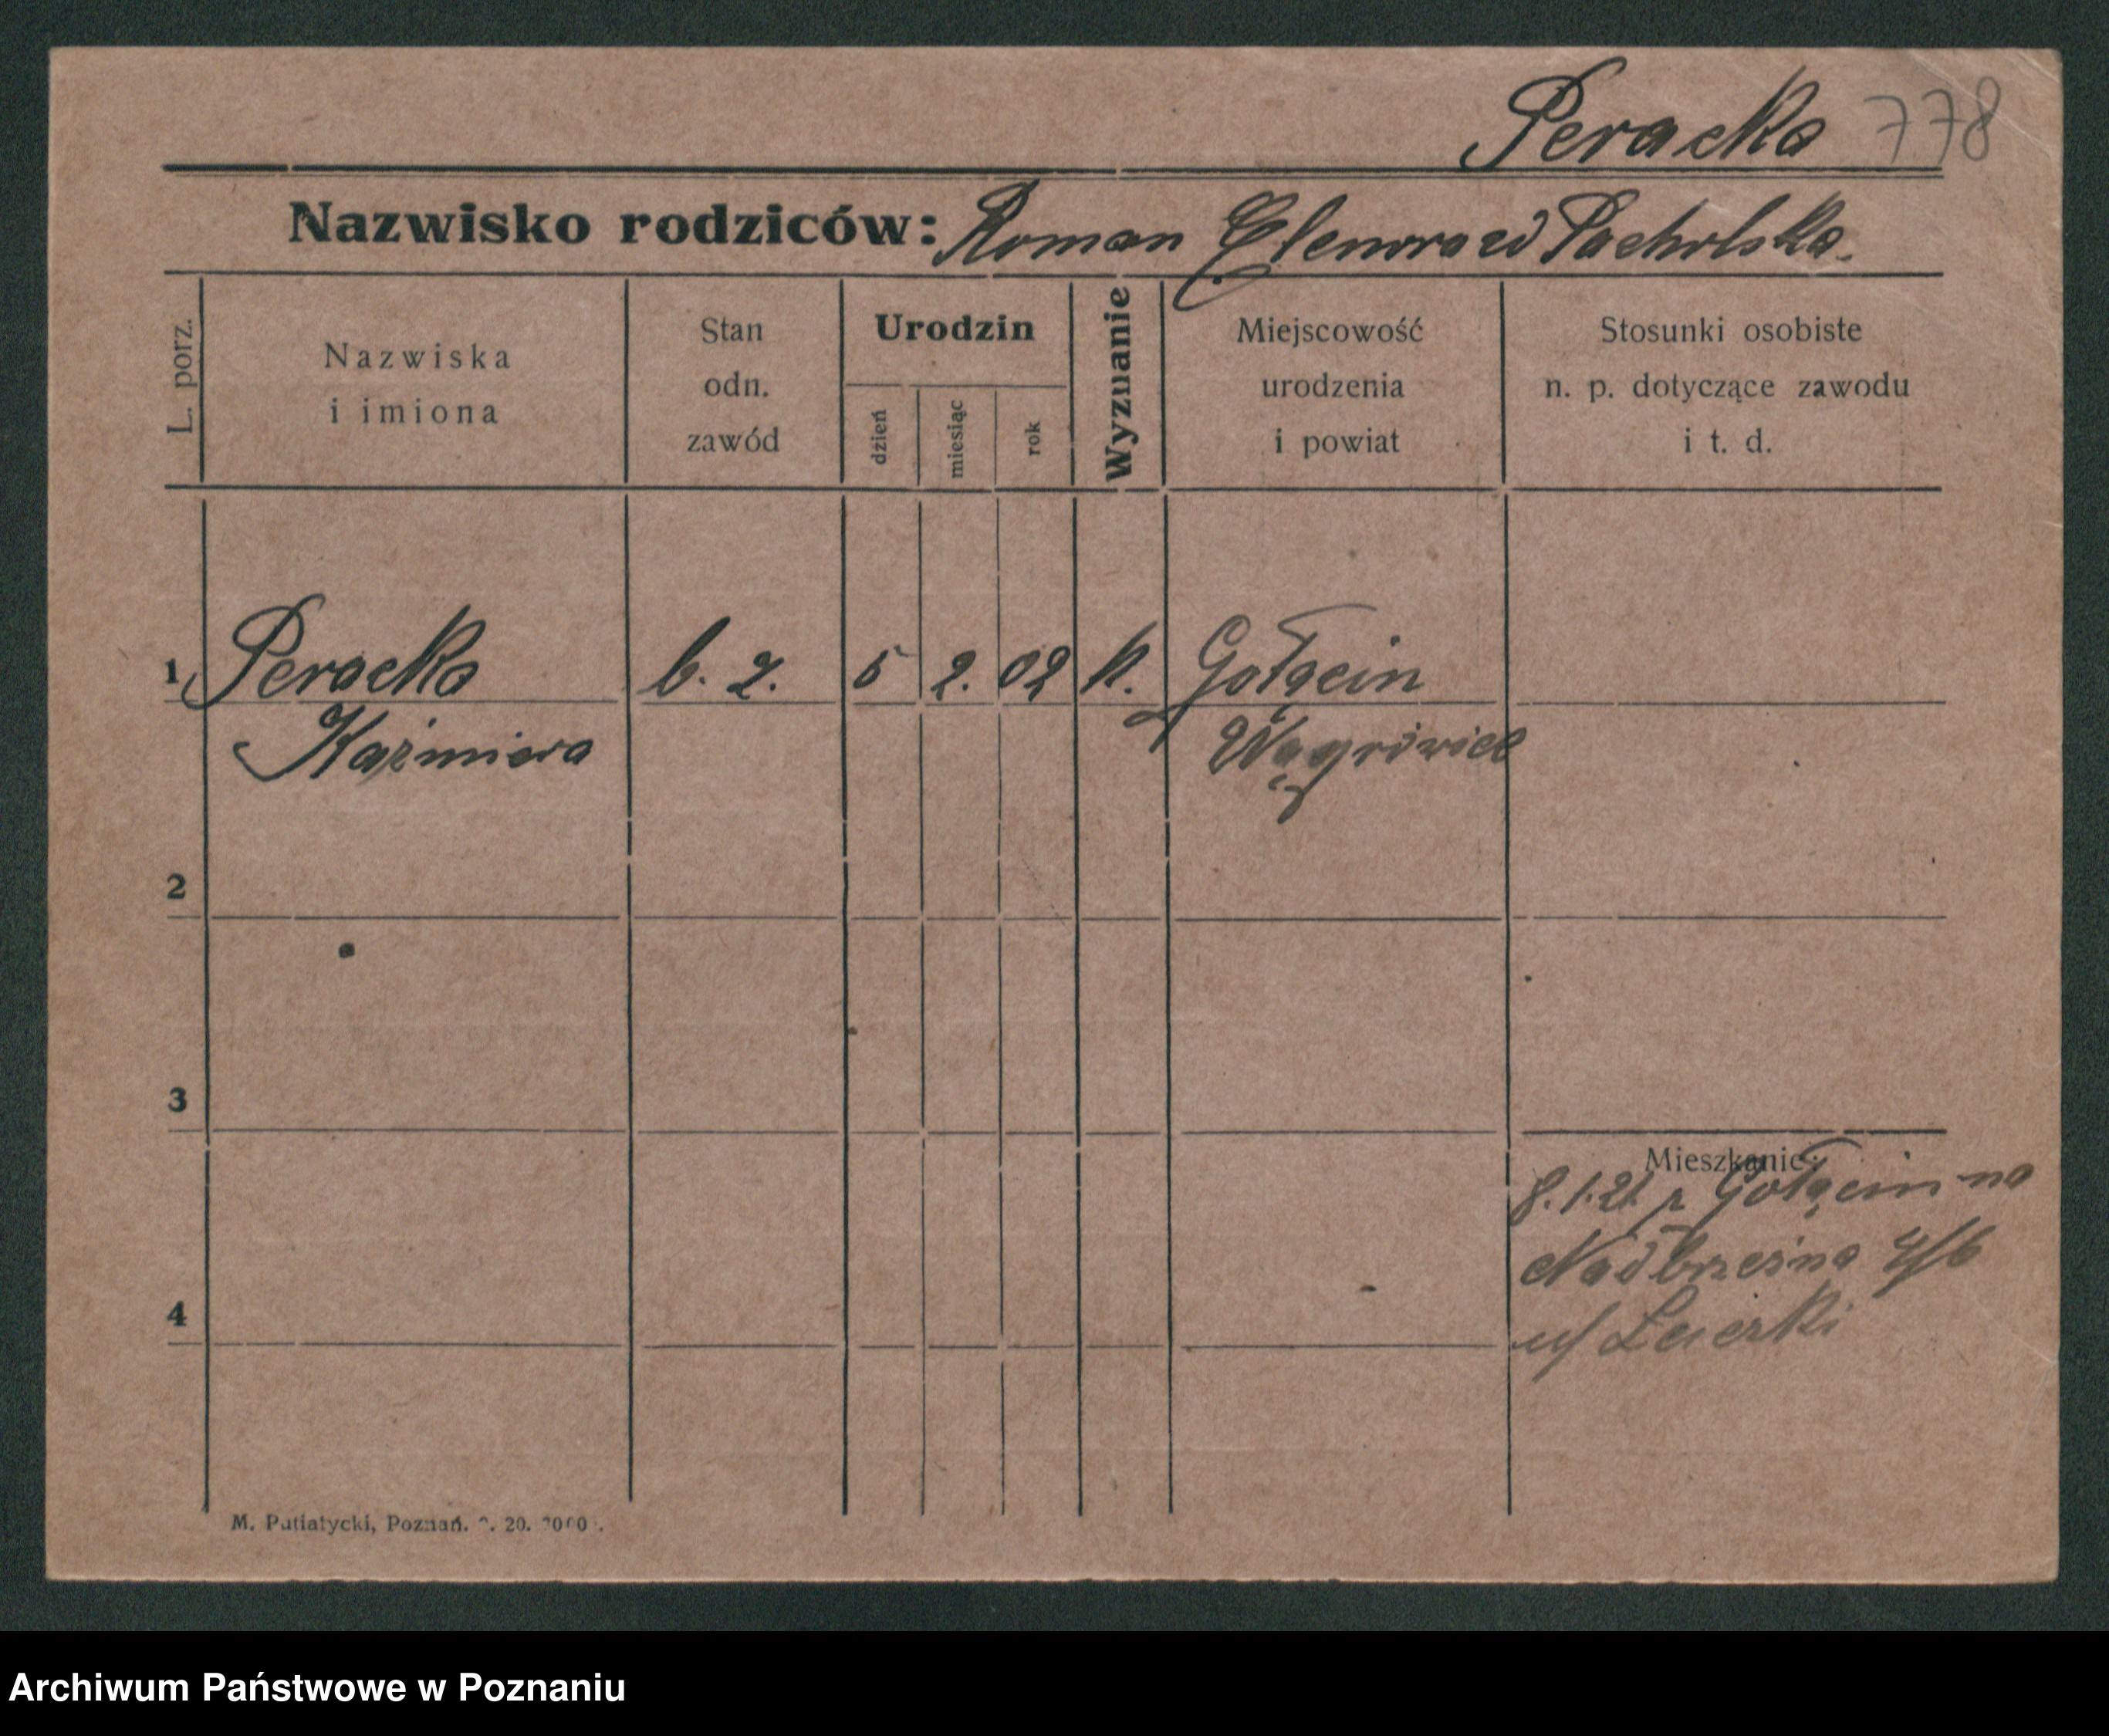 Peracka 778
Nazwisko rodziców: Roman Elenora zd Pacholska.
L. porz.
Nazwiska
i imiona
Stan
odn.
zawód
Urodzin
dzień
miesiąc
rok
Wyznanie
Miejscowość
urodzenia
i powiat
Stosunki osobiste
n. p. dotyczące zawodu
i t. d.
1 Peracka b. z. 5 2. 02 k. Gołącin
Kaźmiera Wągrówiec
2
3
Mieszkanie:
8.1.21 z Gołącin na
Nadbrzeżna 4/6
u/
4
M. Putiatycki, Poznań. 20.
Archiwum Państwowe w Poznaniu